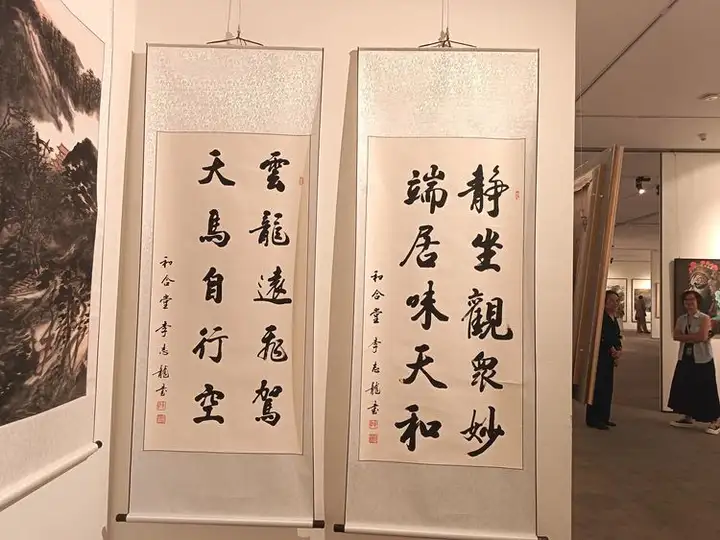 静坐觀衆妙
端居味天和
和合堂 李志龍書
雲龍遠飛駕
天馬自行空
和合堂 李志龍書